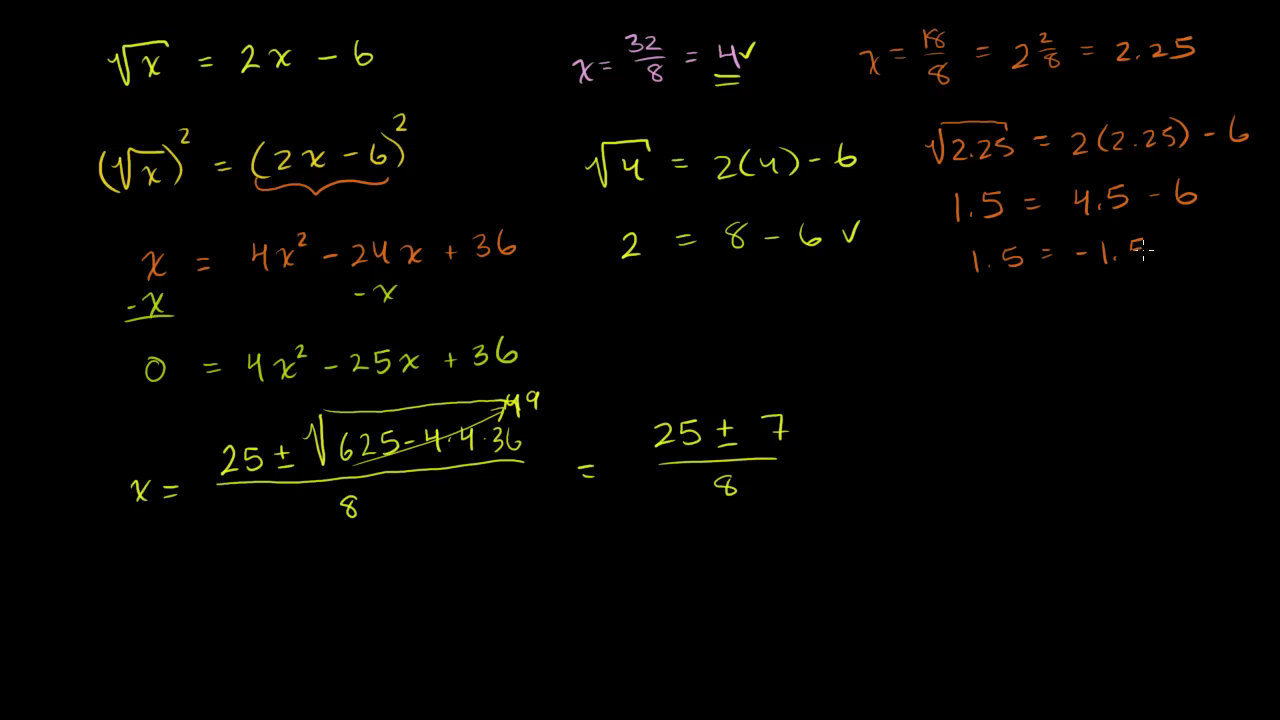 √x = 2x - 6
(√x)² = (2x - 6)²
x = 4x² - 24x + 36
-x - x
0 = 4x² - 25x + 36
x = (25 ± √(625 - 4·4·36))/8 = (25 ± 7)/8
49
x = 32/8 = 4 ✓
√4 = 2(4) - 6
2 = 8 - 6 ✓
x = 18/8 = 2 2/8 = 2.25
√2.25 = 2(2.25) - 6
1.5 = 4.5 - 6
1.5 = -1.5